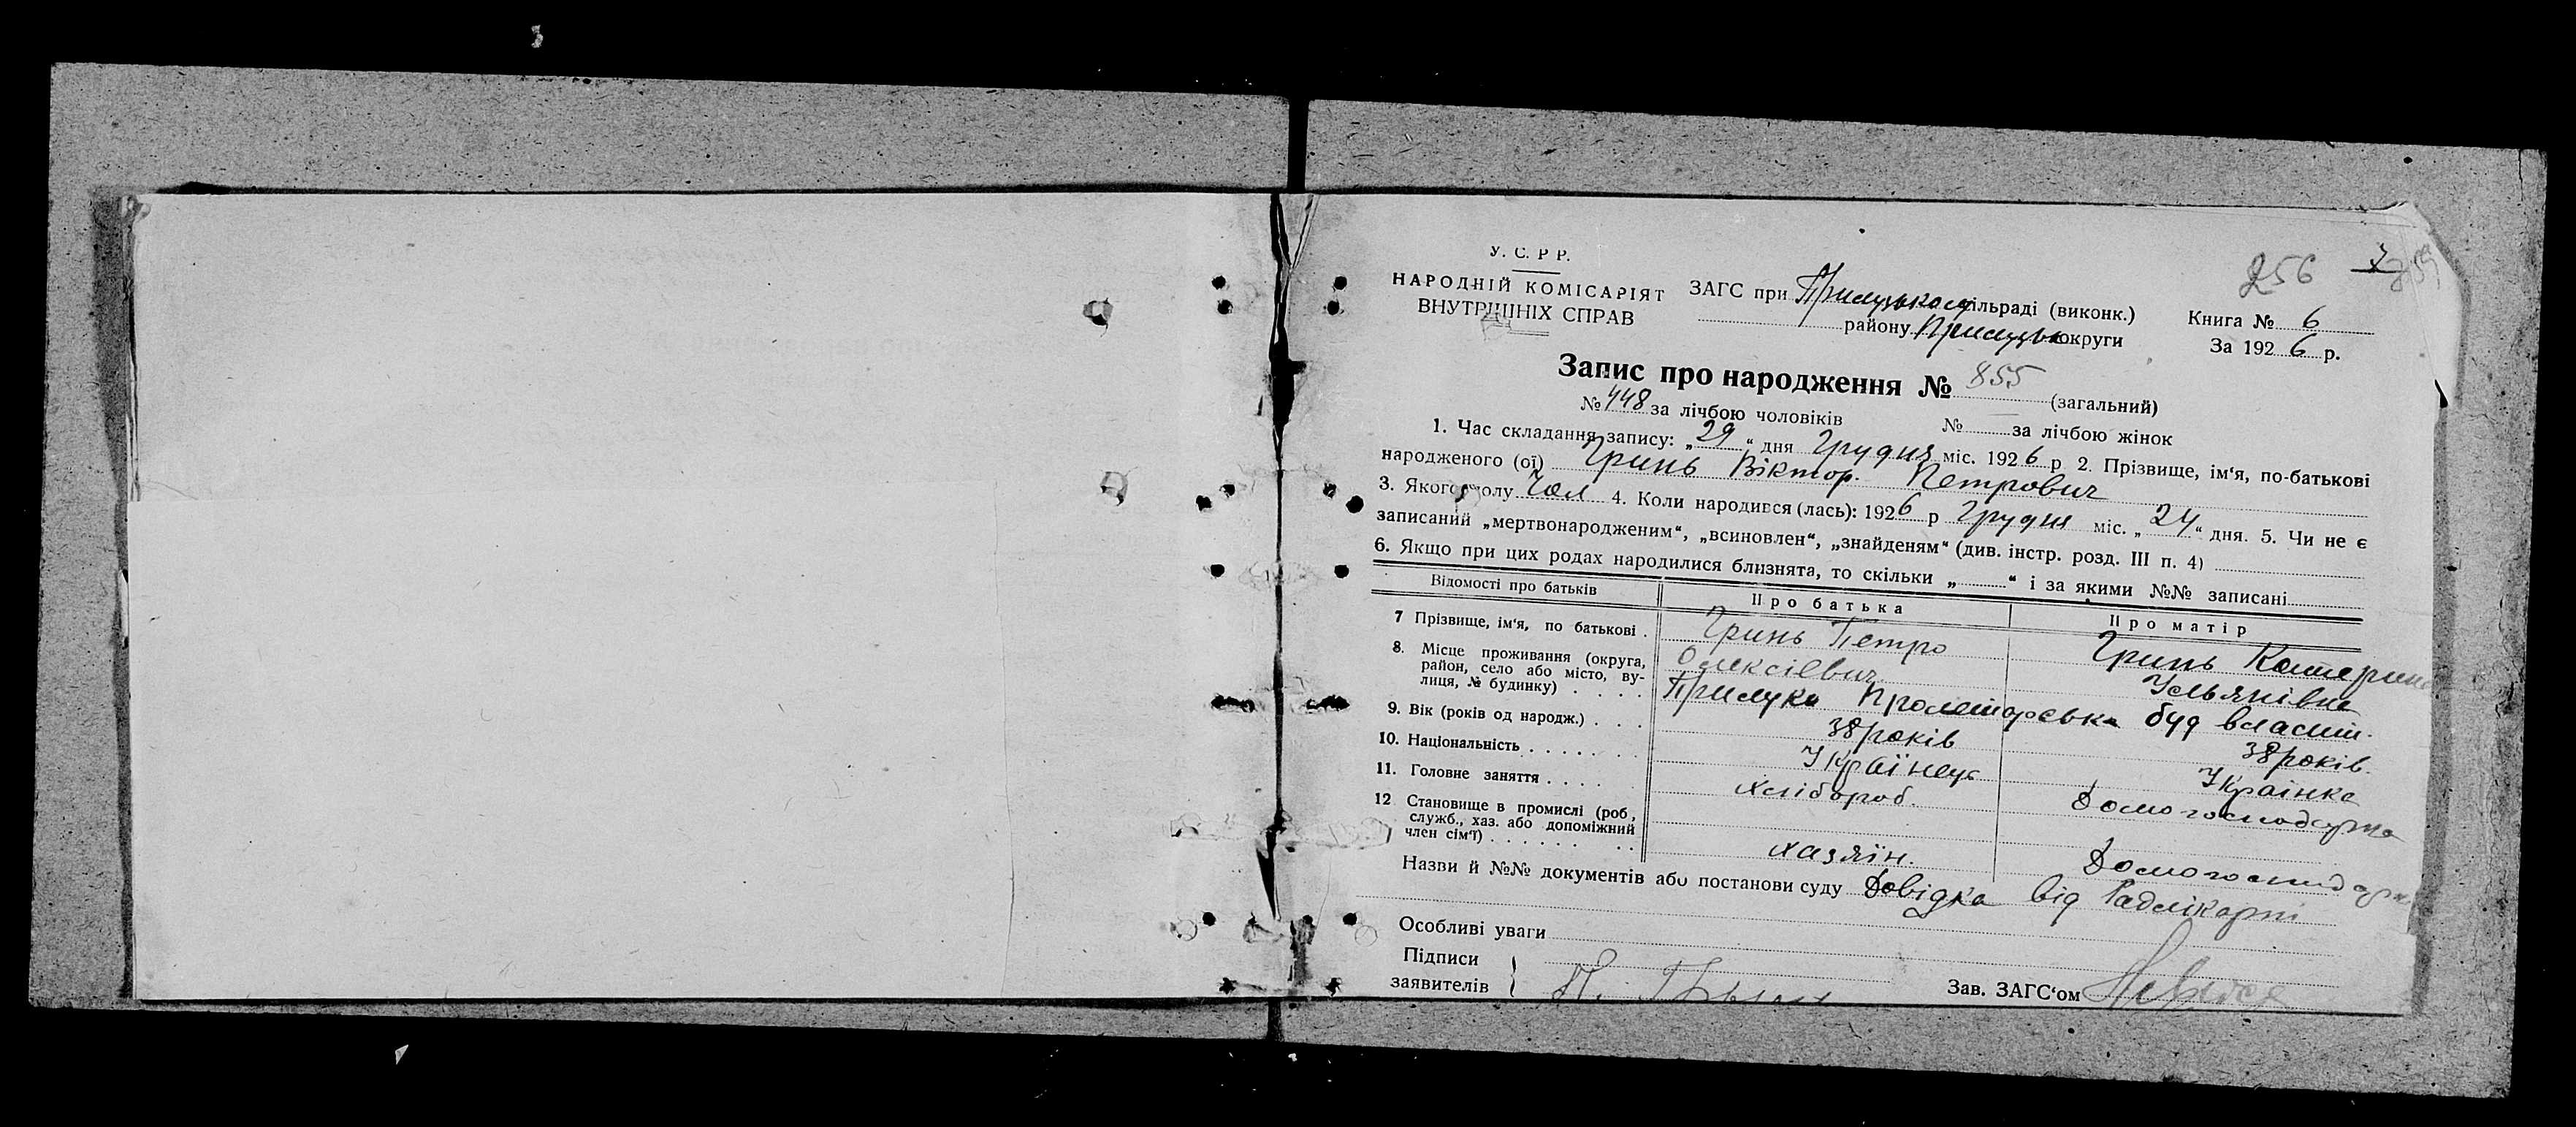 256
У. С. Р Р.
НАРОДНІЙ КОМІСАРІЯТ
ВНУТРІШНІХ СПРАВ
ЗАГС при Прилуцькому сільраді (виконк.)
району Прилуцьк округи
Книга № 6
За 192 6 р.
Запис про народження № 855 (загальний)
№ 448 за лічбою чоловіків № — за лічбою жінок
1. Час складання запису: „ 29 “ дня Грудня міс. 192 6 р 2. Прізвище, ім‘я, по-батькові
народженого (ої) Гринь Віктор. Петрович
3. Якого полу Чол 4. Коли народився (лась): 192 6 р Грудня міс. „ 24 “ дня. 5. Чи не є
записаний „мертвонародженим“, „всиновлен“, „знайденям“ (див. інстр. розд. III п. 4)
6. Якщо при цих родах народилися близнята, то скільки „ “ і за якими №№ записані
Відомості про батьків Про батька Про матір
7 Прізвище, ім‘я, по батькові . Гринь Петро Олексієвич Гринь Катерина Ульянівна
8. Місце проживання (округа,
район, село або місто, ву-
лиця, № будинку) . . . . Прилука Пролетарська буд власн.
9. Вік (років од народж.) . . . 38 років 38 років.
10. Національність . . . . . Українець Українка
11. Головне заняття . . . хлібороб. Домогосподарка
12 Становище в промислі (роб,
служб., хаз. або допоміжний
член сім‘ї) . . . . . . . . хазяїн. Домогосподарк
Назви й №№ документів або постанови суду Довідка від Радлікарні
Особливі уваги
Підписи
заявителів
Зав. ЗАГС‘ом